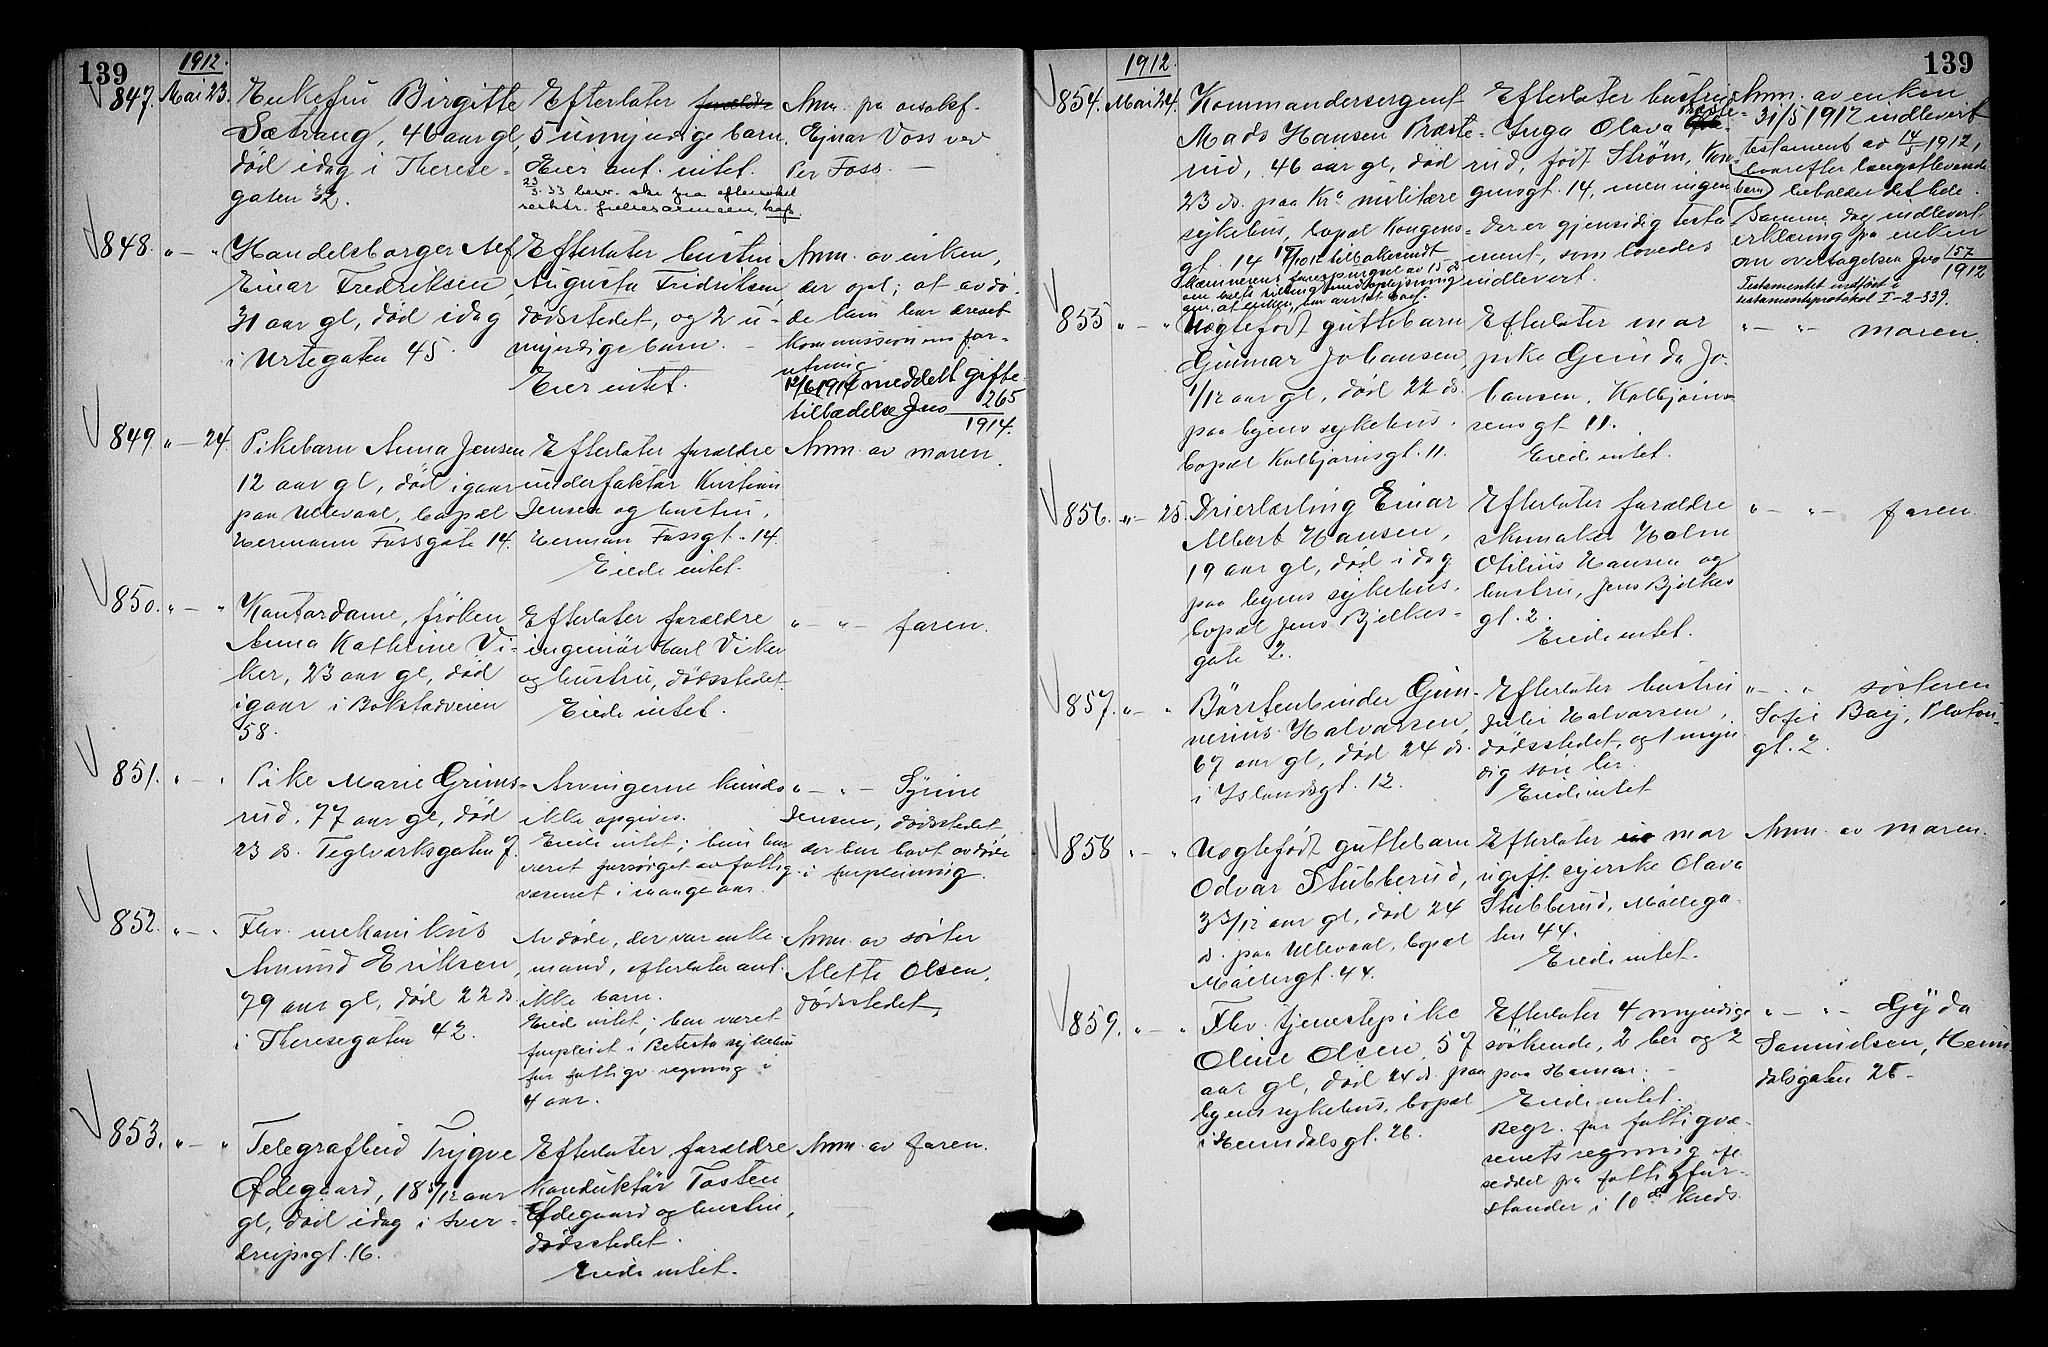 139
1912.
847. Mai 23.
Enkefru Birgitte
Sætrang, 46 aar gl,
död idag i Therese-
gaten 32.
Efterlater forældre
5 umyndige barn.
Eier ant. intet.
Ejnar Voss ved
Per Foss. —
848. „ — „
Handelsborger Alf
Einar Fredriksen,
31 aar gl, död idag
i Urtegaten 45.
Efterlater hustru
Augusta Fridriksen,
dödsstedet, og 2 u-
myndige barn. —
Eier intet.
Anm. av enken,
der opl; at avdö-
de kun har drevet
kommissionsfor-
retning
12/6 1914 meddelt gifte-
tilladelse Jno 265
1914.
849 „ — 24.
Pikebarn Anna Jensen
12 aar gl, död igaar
paa Ullevaal, bopæl
Hermann Fossgate 14.
Efterlater forældre
underfaktor Kristian
Jensen og hustru,
Herman Fossgt. 14.
Eiede intet.
Anm. av moren.
850. „ — „
Kontordame, fröken
Anna Kathrine Vi-
ker, 23 aar gl, död
igaar i Bokstadveien
58.
Efterlater forældre
ingeniör Carl Viker
og hustru, dödsstedet.
Eiede intet.
„ — „ — faren.
851. „ — „
Pike Marie Grims-
rud, 77 aar gl, död
23 ds. Teglverksgaten 7.
Arvingerne kunde
ikke opgives.
Eiede intet; hun har
været forsörget av fattig-
væsenet i mange aar.
„ — „ — Syrine
Jensen, dödsstedet,
der har havt avdöde
i forpleining.
852. „ — „
Fhv. mekanikus
Amund Eriksen,
79 aar gl, död 22 ds.
i Theresegaten 42.
Avdöde, der var enke-
mand, efterlater ant.
ikke barn.
Eiede intet; har været
forpleiet i Betesta sykehus
for fattigv. regning i
4 aar.
Anm. av söster
Alette Olsen,
dödsstedet,
853. „ — „
Telegrafbud Trygve
Ödegaard, 18 5/12 aar
gl, död idag i Sver-
drupsgt. 16.
Efterlater forældre
konduktör Tosten
Ödegaard og hustru,
dödsstedet.
Eiede intet.
Anm. av faren.
139
1912.
854. Mai 24.
Kommandersergent
Mads Hansen Præste-
rud, 46 aar gl, död
23 ds. paa Kra militære
sykehus, bopæl Kongens-
gt. 14
Efterlater hustru
Inga Olava Præste-
rud, född Ström, Kon-
gensgt. 14, men ingen barn
Der er gjensidig testa-
ment, som lovedes
indlevert.
Anm. av enken
31/5 1912 indlevert
testament av 14/1 1912,
hvorefter længstlevende
beholder det hele.
Samme dag indlevert
erklæring fra enken
om overtagelsen Jno 157
1912
Testamentet indfört i
testamentsprotokol I-2-339.
855 „ — „
Uegtefödt guttebarn
Gunnar Johansen,
1/12 aar gl, död 22 ds.
paa byens sykehus.
bopæl Kolbjørnsgt. 11.
Efterlater mor
pike Gunda Jo-
hansen, Kolbjørn-
sensgt 11.
Eiede intet.
„ — „ — moren.
856. „ — 25.
Dreierlærling Einar
Albert Hansen,
19 aar gl, död idag
paa byens sykehus.
bopæl Jens Bjelkes-
gate 2.
Efterlater forældre
skomaker Holm
Otilius Hansen og
hustru, Jens Bjelkes
gt. 2.
Eiede intet.
„ — „ — faren.
857. „ — „
Börstenbinder Gun-
nerius Halvorsen,
67 aar gl, död 24 ds.
i Islandsgt. 12.
Efterlater hustru
Julie Halvorsen,
dödsstedet, og 1 myn-
dig sön her.
Eiede intet
„ — „ söstereren
Sofie Baij, Platous-
gt. 2.
858 „ — „
Uegtefödt guttebarn
Odvar Stubberud,
3 3/12 aar gl, död 24
d. paa Ullevaal, bopæl
Möllergt. 44.
Efterlater mor
ugift syerske Olava
Stubberud, Möllerga-
ten 44.
Eiede intet.
Anm. av moren.
859. „ — „
Fhv. tjenestepike
Oline Olsen, 57
aar gl, död 24 d. paa
byens sykehus, bopæl
i Heimdalsgt. 26.
Efterlater 4 myndige
söskende, 2 her og 2
paa Hamar. —
Eiede intet.
Begr. for fattigvæ-
senets regning efter
seddel fra fattigfor-
stander i 10de kreds.
„ — „ — Gyda
Samuelsen, Heim-
dalsgaten 26 —